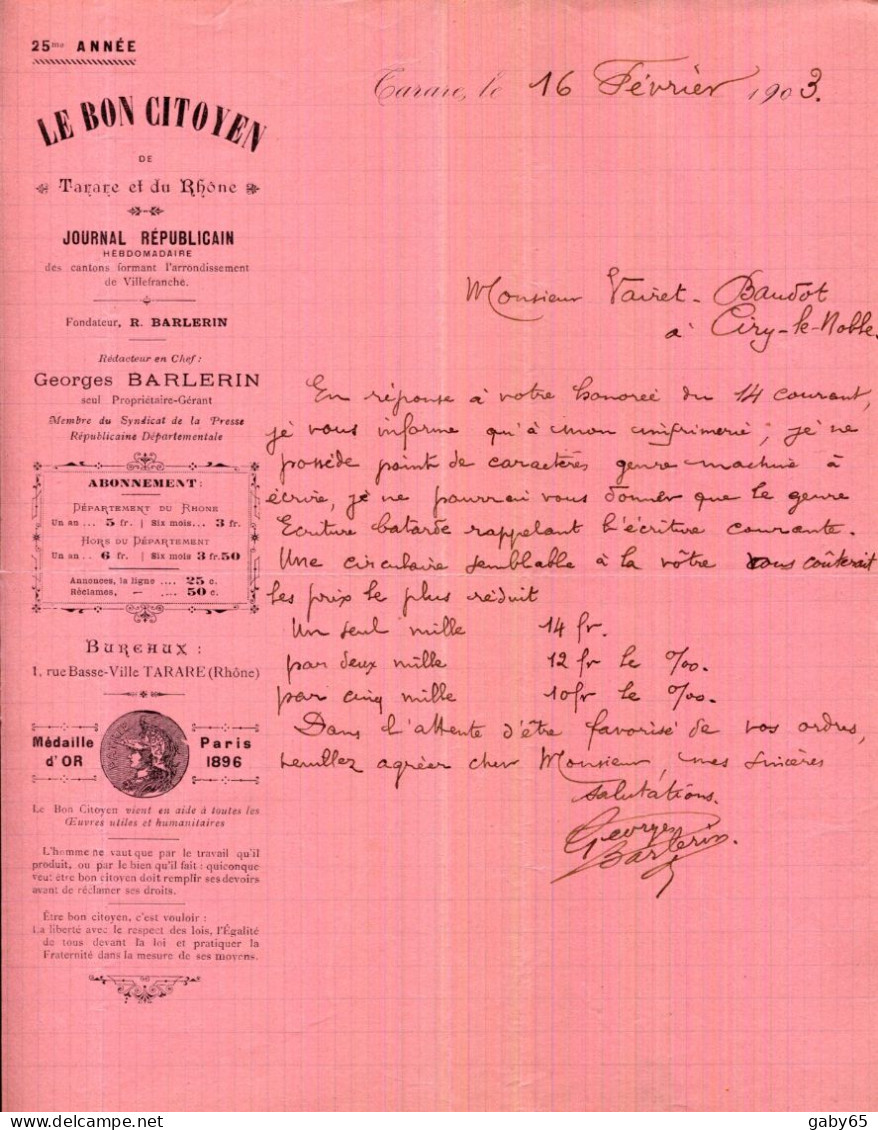 25me ANNÉE
LE BON CITOYEN
DE
Tarare et du Rhône
JOURNAL RÉPUBLICAIN
HEBDOMADAIRE
des cantons formant l'arrondissement
de Villefranche.
Fondateur, R. BARLERIN
Rédacteur en Chef:
Georges BARLERIN
seul Propriétaire-Gérant
Membre du Syndicat de la Presse
Républicaine Départementale
ABONNEMENT:
DÉPARTEMENT DU RHONE
Un an... 5 fr. | Six mois... 3 fr.
HORS DU DÉPARTEMENT
Un an.. 6 fr. | Six mois 3 fr. 50
Annonces, la ligne .... 25 c.
Réclames, — .... 50 c.
BUREAUX :
1, rue Basse-Ville TARARE (Rhône)
Médaille Paris
d'OR 1896
Le Bon Citoyen vient en aide à toutes les
Œuvres utiles et humanitaires
L'homme ne vaut que par le travail qu'il
produit, ou par le bien qu'il fait : quiconque
veut être bon citoyen doit remplir ses devoirs
avant de réclamer ses droits.
Être bon citoyen, c'est vouloir :
La liberté avec le respect des lois, l'Égalité
de tous devant la loi et pratiquer la
Fraternité dans la mesure de ses moyens.
Tarare, le 16 Février 1903.
Monsieur Vairet-Baudot
à Ciry-le-Noble.
En réponse à votre honoreé du 14 courant,
je vous informe qu'à mon imprimerie, je ne
possède point de caractères genre machine à
écrire, je ne pourrai vous donner que le genre
Ecriture batarde rappelant l'écriture courante.
Une circulaire semblable à la vôtre vous coûterait
les prix le plus réduit
Un seul mille 14 fr.
par deux mille 12 fr le %00.
par cinq mille 10 fr le %00.
Dans l'attente d'être favorisé de vos ordres,
veuillez agréer cher Monsieur, mes sincères
salutations.
Georges
Barlerin.
gaby65